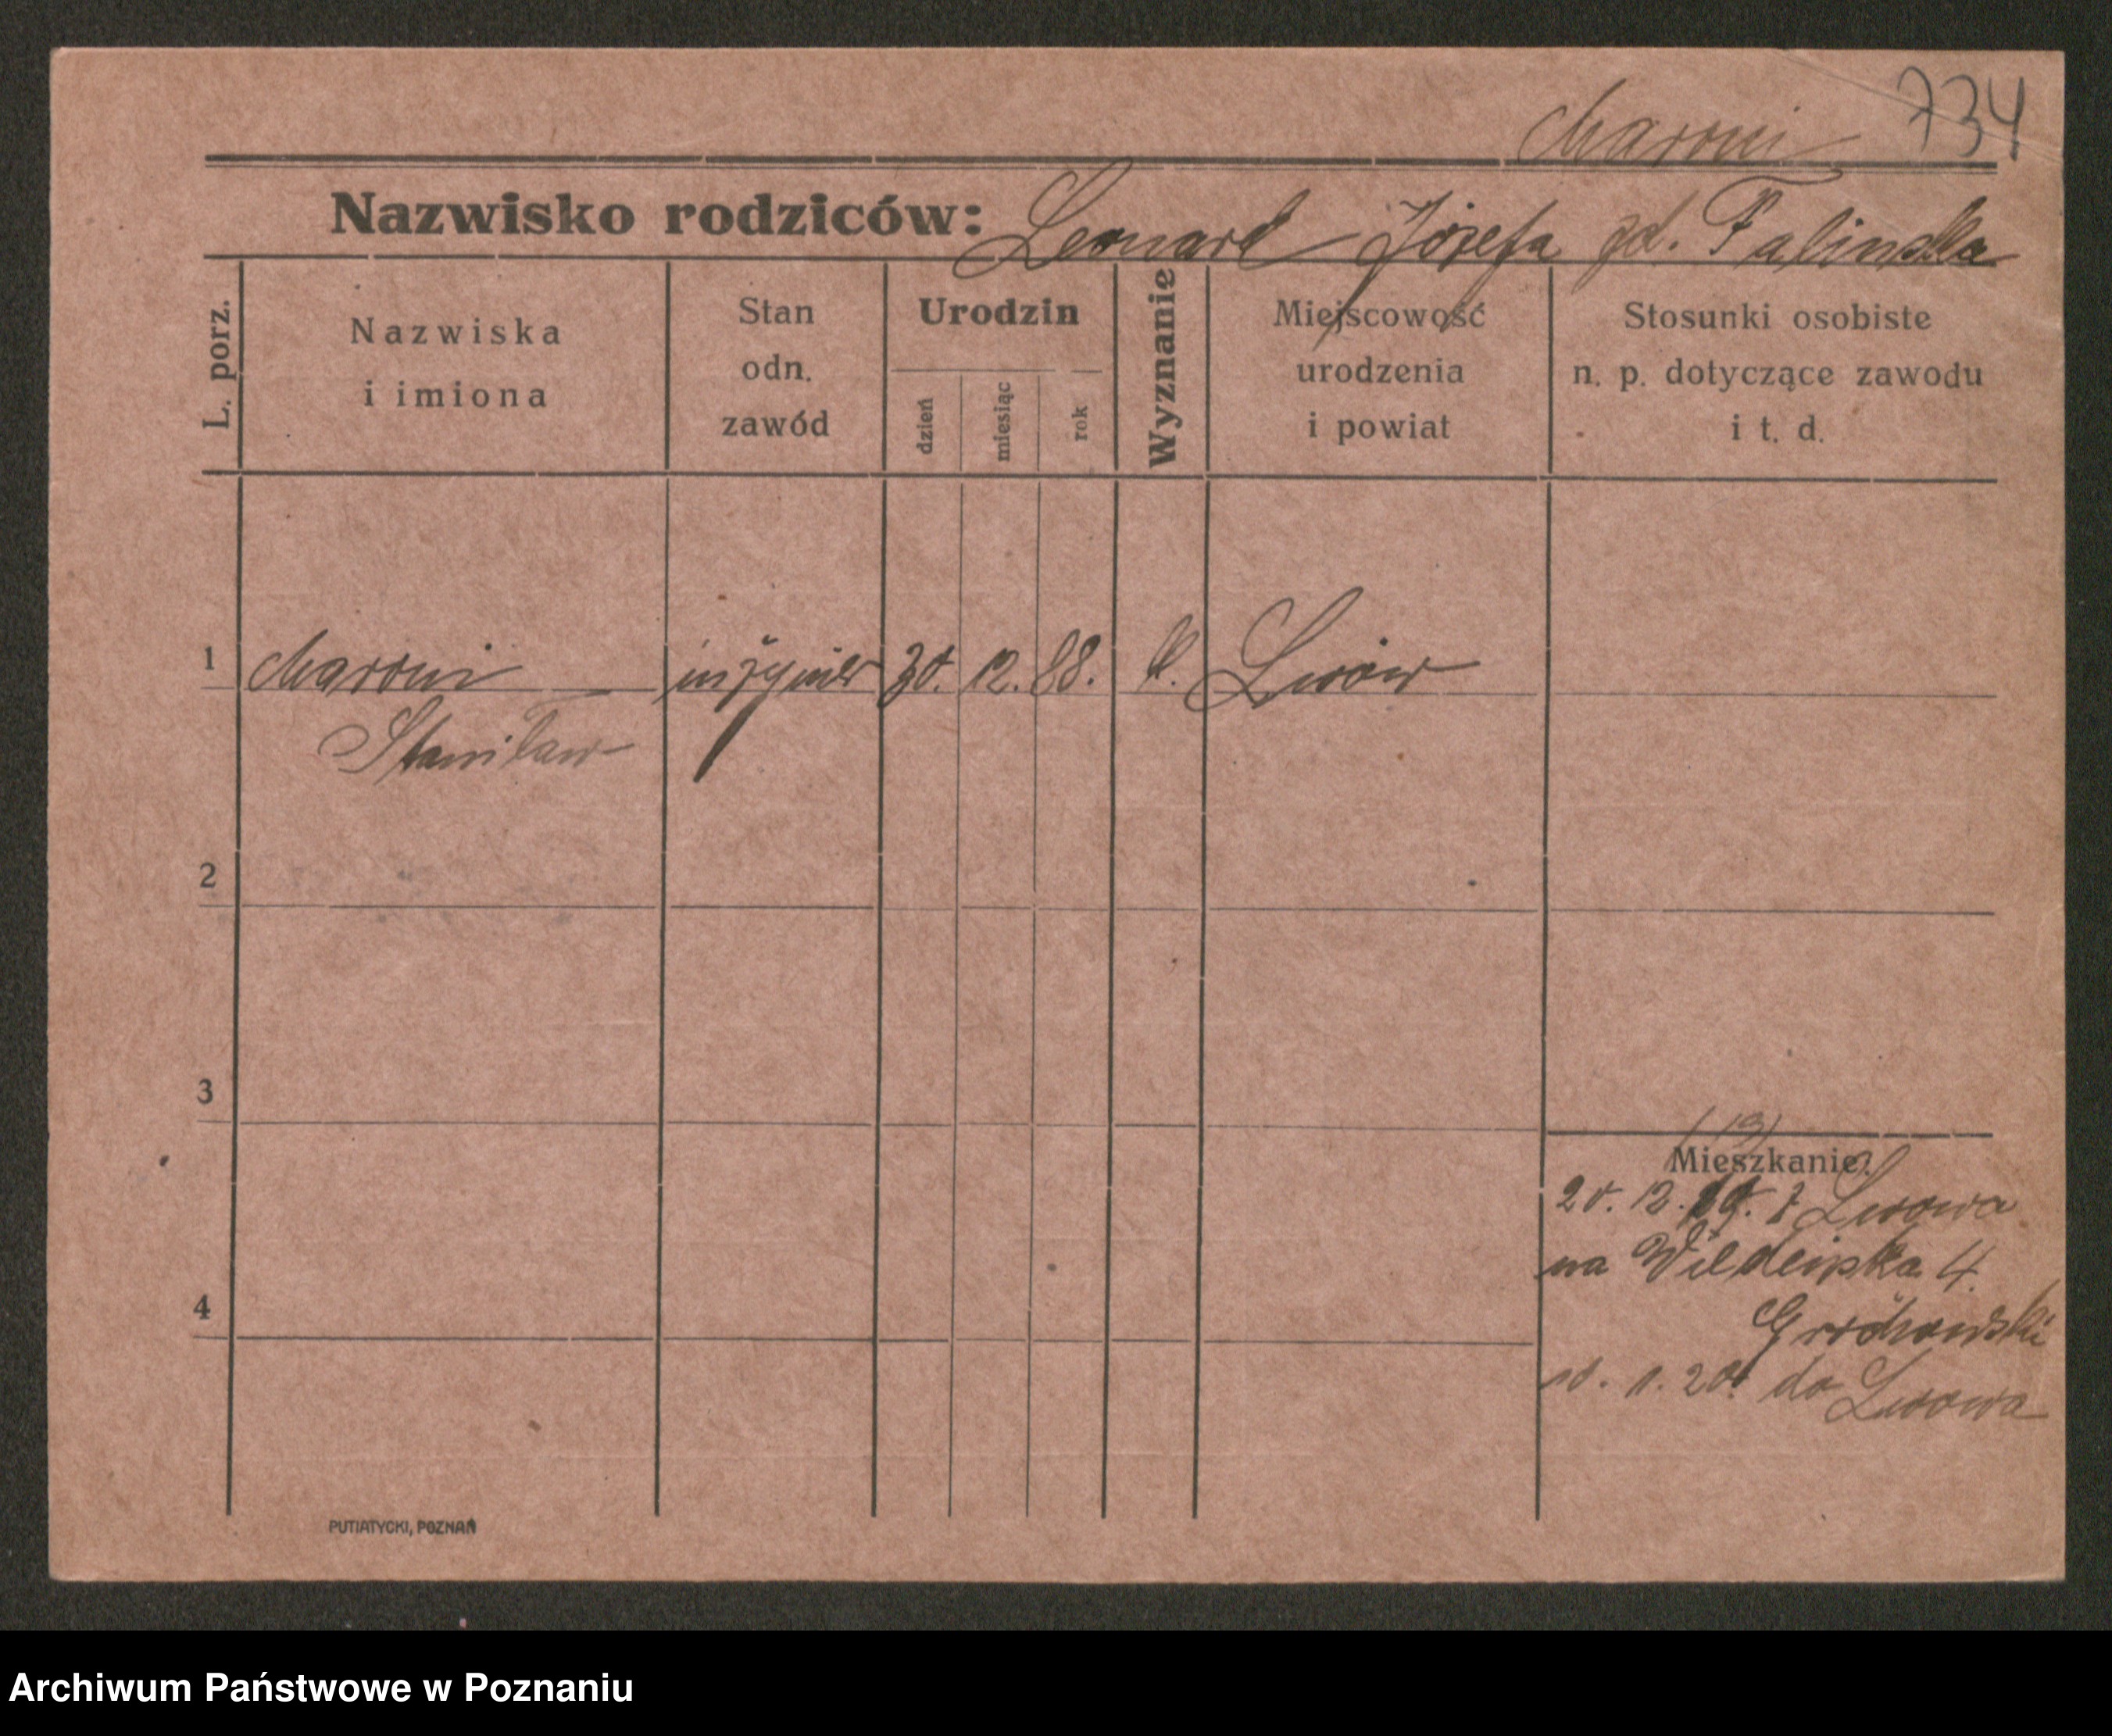 734
Maroni
Nazwisko rodziców: Leonard Józefa zd. Falinska
L. porz.
Nazwiska
i imiona
Stan
odn.
zawód
Urodzin
dzień
miesiąc
rok
Wyznanie
Miejscowość
urodzenia
i powiat
Stosunki osobiste
n. p. dotyczące zawodu
i t. d.
1 Maroni inżynier 30. 12. 88. k. Lwów
Stanisław
2
3
4
(13)
Mieszkanie.
20. 12. 19. z Lwowa
na Wildeińska 4
Grochowski
10. 1. 20. do Lwowa
PUTIATYCKI, POZNAŃ
Archiwum Państwowe w Poznaniu